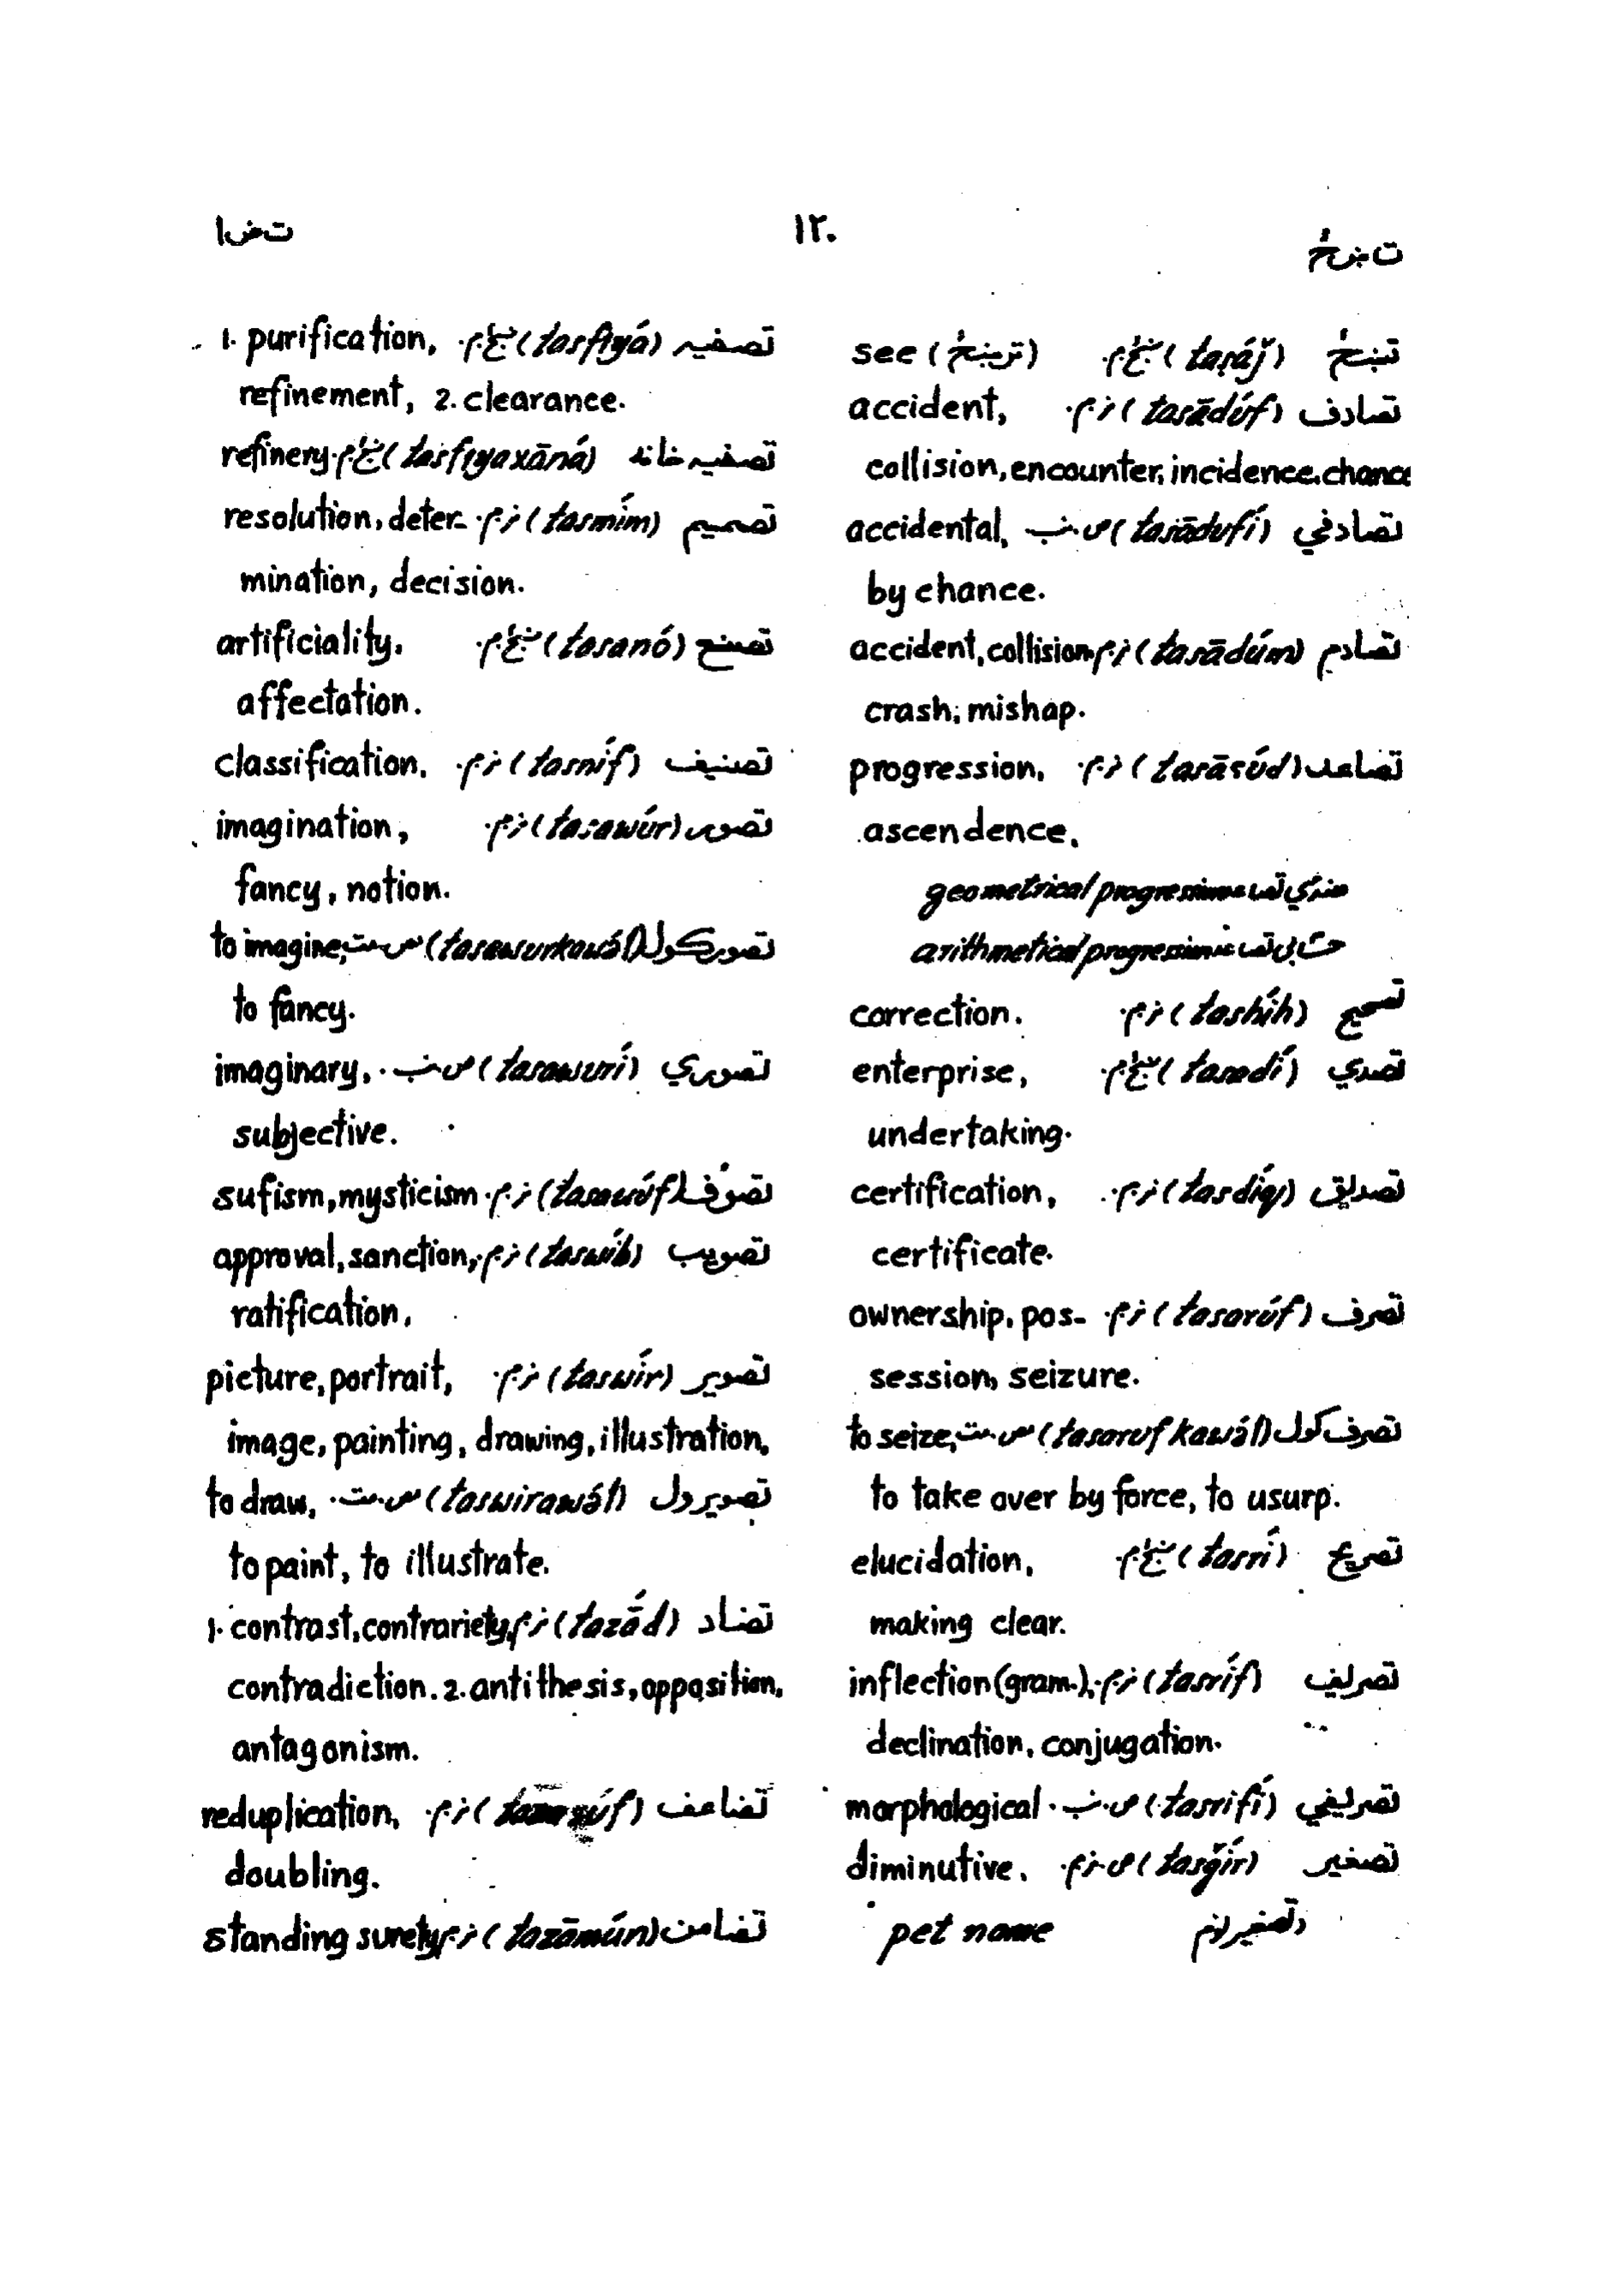 تضا ۱۲۰ تښځ
تښځ (taṣ̌áǰ) ښځ.م. see (تريښځ)
تصادف (tasādúf) نر.م. accident,
collision, encounter, incidence, chance
تصادفي (tasādufí) ص.نب. accidental,
by chance.
تصادم (tasādúm) نر.م. accident, collision
crash, mishap.
تصاعد (tasāʿúd) نر.م. progression,
ascendence.
هندسي تصاعد geometrical progression
حسابي تصاعد arithmetical progression
تصحيح (tashíh) نر.م. correction.
تصدي (tasadí) ښځ.م. enterprise,
undertaking.
تصديق (tasdíq) نر.م. certification,
certificate.
تصرف (tasarúf) نر.م. ownership, pos-
session, seizure.
تصرف کول (tasaruf kawə́l) مص.مت. to seize,
to take over by force, to usurp.
تصريح (tasrí) ښځ.م. elucidation,
making clear.
تصريف (tasríf) نر.م. inflection (gram.),
declination, conjugation.
تصريفي (tasrifí) ص.نب. morphological
تصغير (tasğír) ص.نر.م. diminutive.
دتصغير نوم pet name
تصفيه (tasfiyá) ښځ.م. 1. purification,
refinement, 2. clearance.
تصفيه خانه (tasfiyaxāná) ښځ.م. refinery
تصميم (tasmím) نر.م. resolution, deter-
mination, decision.
تصنع (tasanó) ښځ.م. artificiality,
affectation.
تصنيف (tasníf) نر.م. classification.
تصور (tasawúr) نر.م. imagination,
fancy, notion.
تصور کول (tasawurkawə́l) مص.مت. to imagine,
to fancy.
تصوري (tasawurí) ص.نب. imaginary,
subjective.
تصوف (tasawúf) نر.م. sufism, mysticism
تصويب (taswíb) نر.م. approval, sanction,
ratification.
تصوير (taswír) نر.م. picture, portrait,
image, painting, drawing, illustration.
تصويرول (taswirawə́l) مص.مت. to draw,
to paint, to illustrate.
تضاد (tazā́d) نر.م. 1. contrast, contrariety,
contradiction. 2. antithesis, opposition,
antagonism.
تضاعف نر.م. reduplication,
doubling.
تضامن (tazāmún) نر.م. standing surety